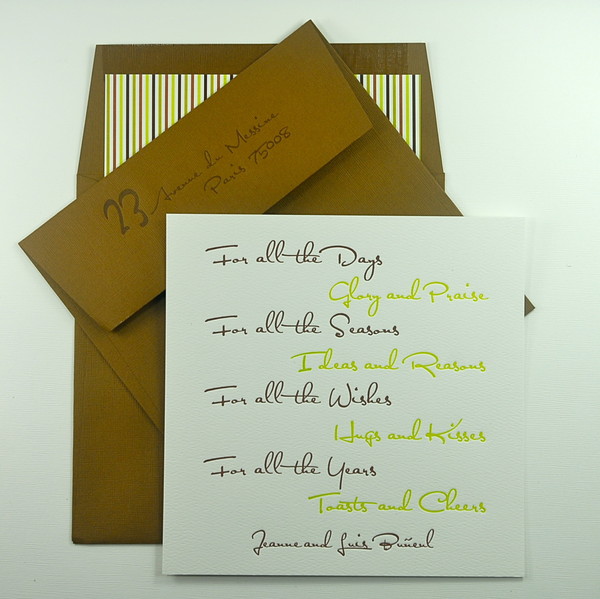 23 Avenue du Messine
Paris 75008
For all the Days
Glory and Praise
For all the Seasons
Ideas and Reasons
For all the Wishes
Hugs and Kisses
For all the Years
Toasts and Cheers
Jeanne and Luis Buñeul